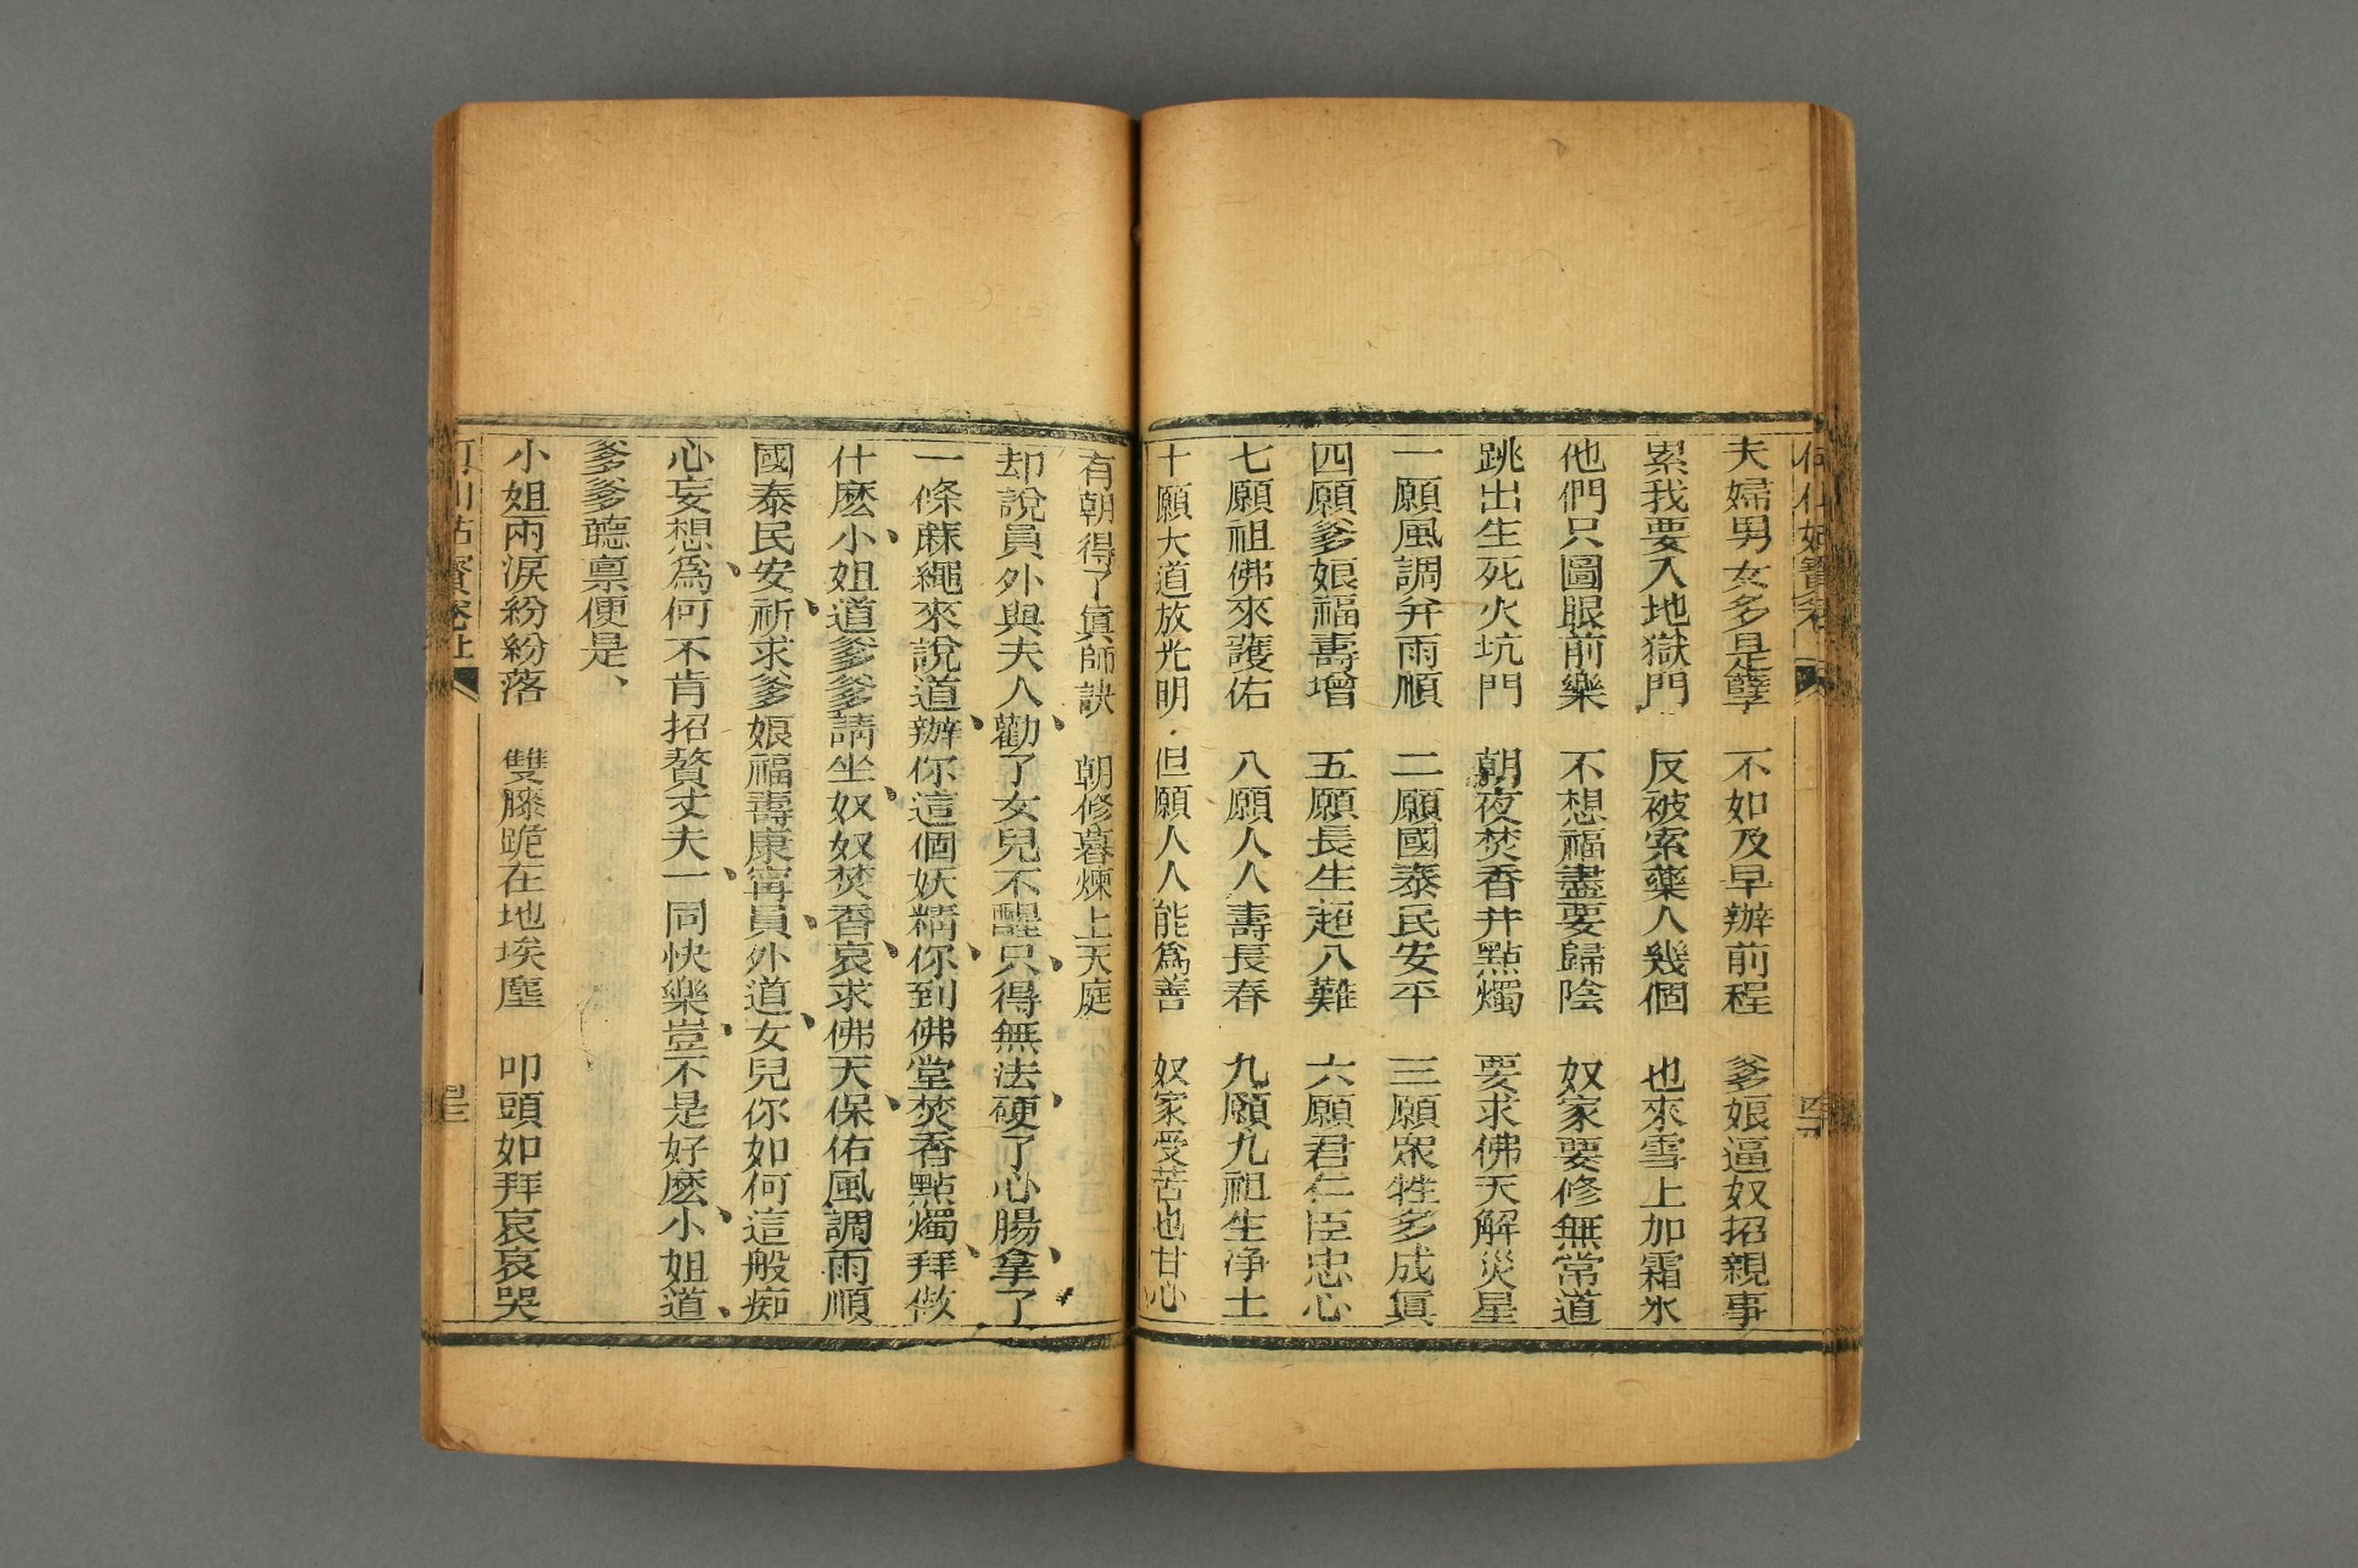 何仙姑寶卷
夫婦男女多是孽　不如及早辦前程　爹娘逼奴招親事
累我要入地獄門　反被索藥人幾個　也來雪上加霜氷
他們只圖眼前樂　不想福盡要歸陰　奴家要修無常道
跳出生死火坑門　朝夜焚香并點燭　要求佛天解災星
一願風調并雨順　二願國泰民安平　三願衆牲多成眞
四願爹娘福壽增　五願長生超八難　六願君仁臣忠心
七願祖佛來護佑　八願人人壽長春　九願九祖生净土
十願大道放光明　但願人人能爲善　奴家受苦也甘心
有朝得了眞師訣　朝修暮煉上天庭
却說員外與夫人、勸了女兒不醒、只得無法、硬了心腸、拿了
一條蔴繩來說道、辦你這個妖精、你到佛堂焚香點燭、拜做
什麽、小姐道爹爹請坐、奴奴焚香、哀求佛天、保佑風調雨順
國泰民安、祈求爹娘福壽康寗、員外道、女兒你如何這般痴
心妄想、爲何不肯招贅丈夫、一同快樂、豈不是好麽、小姐道、
爹爹聽禀便是、
小姐兩淚紛紛落　雙膝跪在地埃塵　叩頭如拜哀哀哭
何仙姑寶卷上